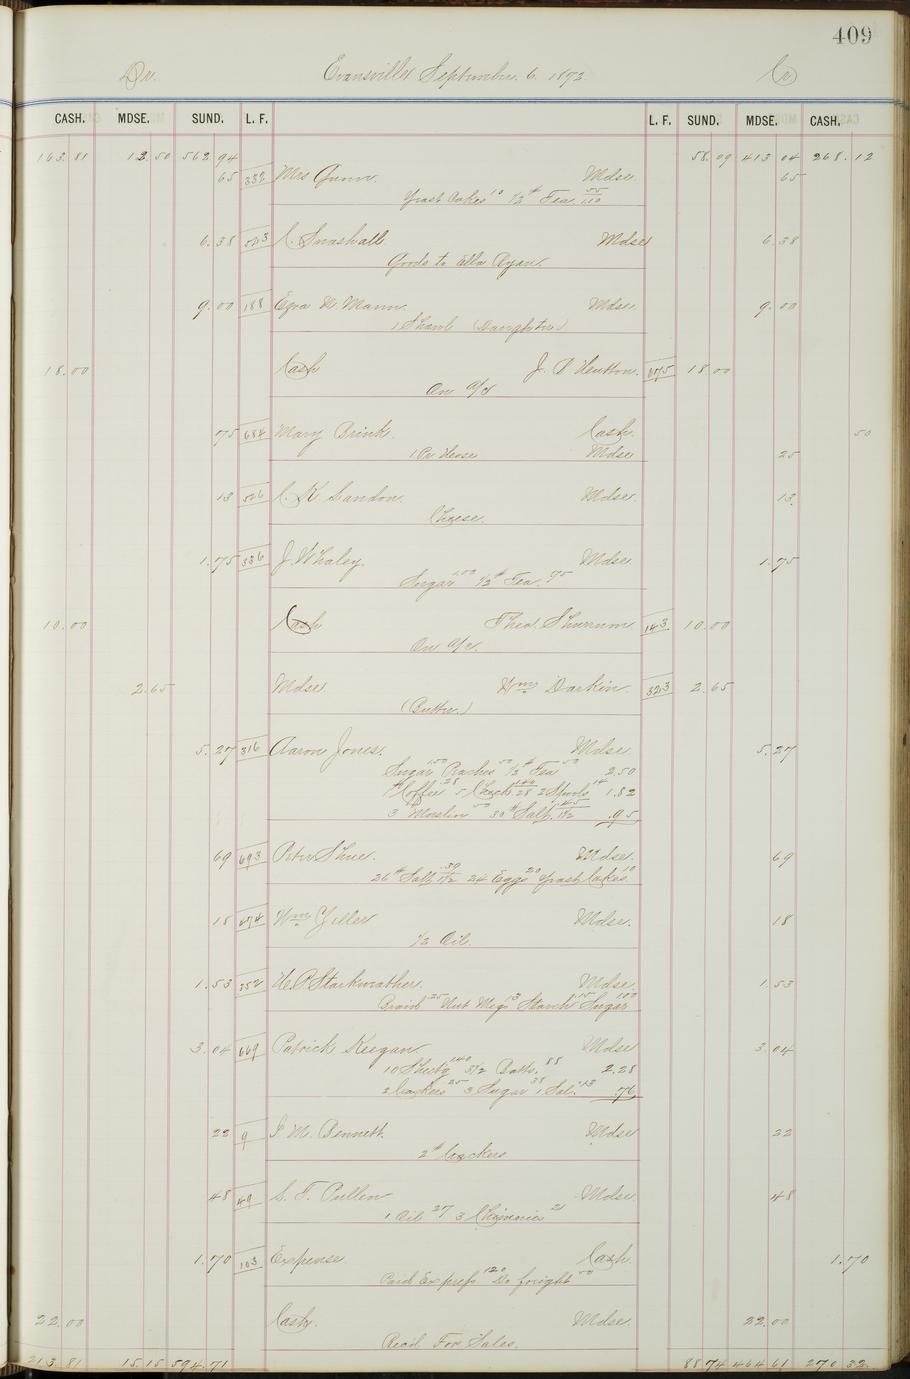 409
Dr. Evansville September. 6. 1872 Cr
CASH. MDSE. SUND. L. F. L. F. SUND. MDSE. CASH.
163.81 12.50 562.94 58.09 413.04 268.12
65 332 Mrs Gunn. Mdse. 65
Yeast Cakes 10 1/2 # Tea 55 1.10
6.38 503 C. Snashall Mdse 6.38
Goods to Ella Ryan.
9.00 188 Ezra W. Mann. Mdse. 9.00
1 Shawl (Daughter)
18.00 Cash J. P Hutton. 675 18.00
On a/c
75 684 Mary Brink. Cash. 50
1 Pr Hose Mdse 25
13 506 C. K. Landon. Mdse. 13.
Cheese.
1.75 336 J. Whaley. Mdse. 1.75
Sugar 1.00 1/2 # Tea. 75
10.00 Cash Theo. Shurrum 143 10.00
On a/c.
2.65 Mdse. Wm Darkin. 323 2.65
(Butter.)
5.27 316 Aaron Jones. Mdse. 5.27
Sugar 1.50 Peaches 50 1/2 # Tea 50 2.50
1 # Coffee .28 5 1.40 .28 2 Spools 14 1.82
3 Muslin 50 30 # Salt .45 1 1/2 .95
69 693 Peter Shue. Mdse. 69
26 # Salt .39 1 1/2 24 Eggs 20 Yeast Cakes 10
18 474 Wm Yeller Mdse. 18
1/2 Oil.
1.53 352 H. P. Starkweather. Mdse. 1.53
Braid 25 Nut Megs 13 Starch .15 Sugar 1.00
3.04 669 Patrick Keegan. Mdse 3.04
10 Sheetg 1.40 5 1/2 Batts. 88 2.28
2 Crackers 25 3 Sugar 38 1 Sal. 13 76
22 9 I. M. Bennett. Mdse 22
2 # Crackers.
48 49 S. F. Pullen Mdse 48
1 Oil 27 3 Chimneies 21
1.70 103 Expense Cash 1.70
Paid Express 1.20 Do freight 50
22.00 Cash. Mdse. 22.00
Recd For Sales.
213.81 15.15 594.71 88.74 464.61 270.32